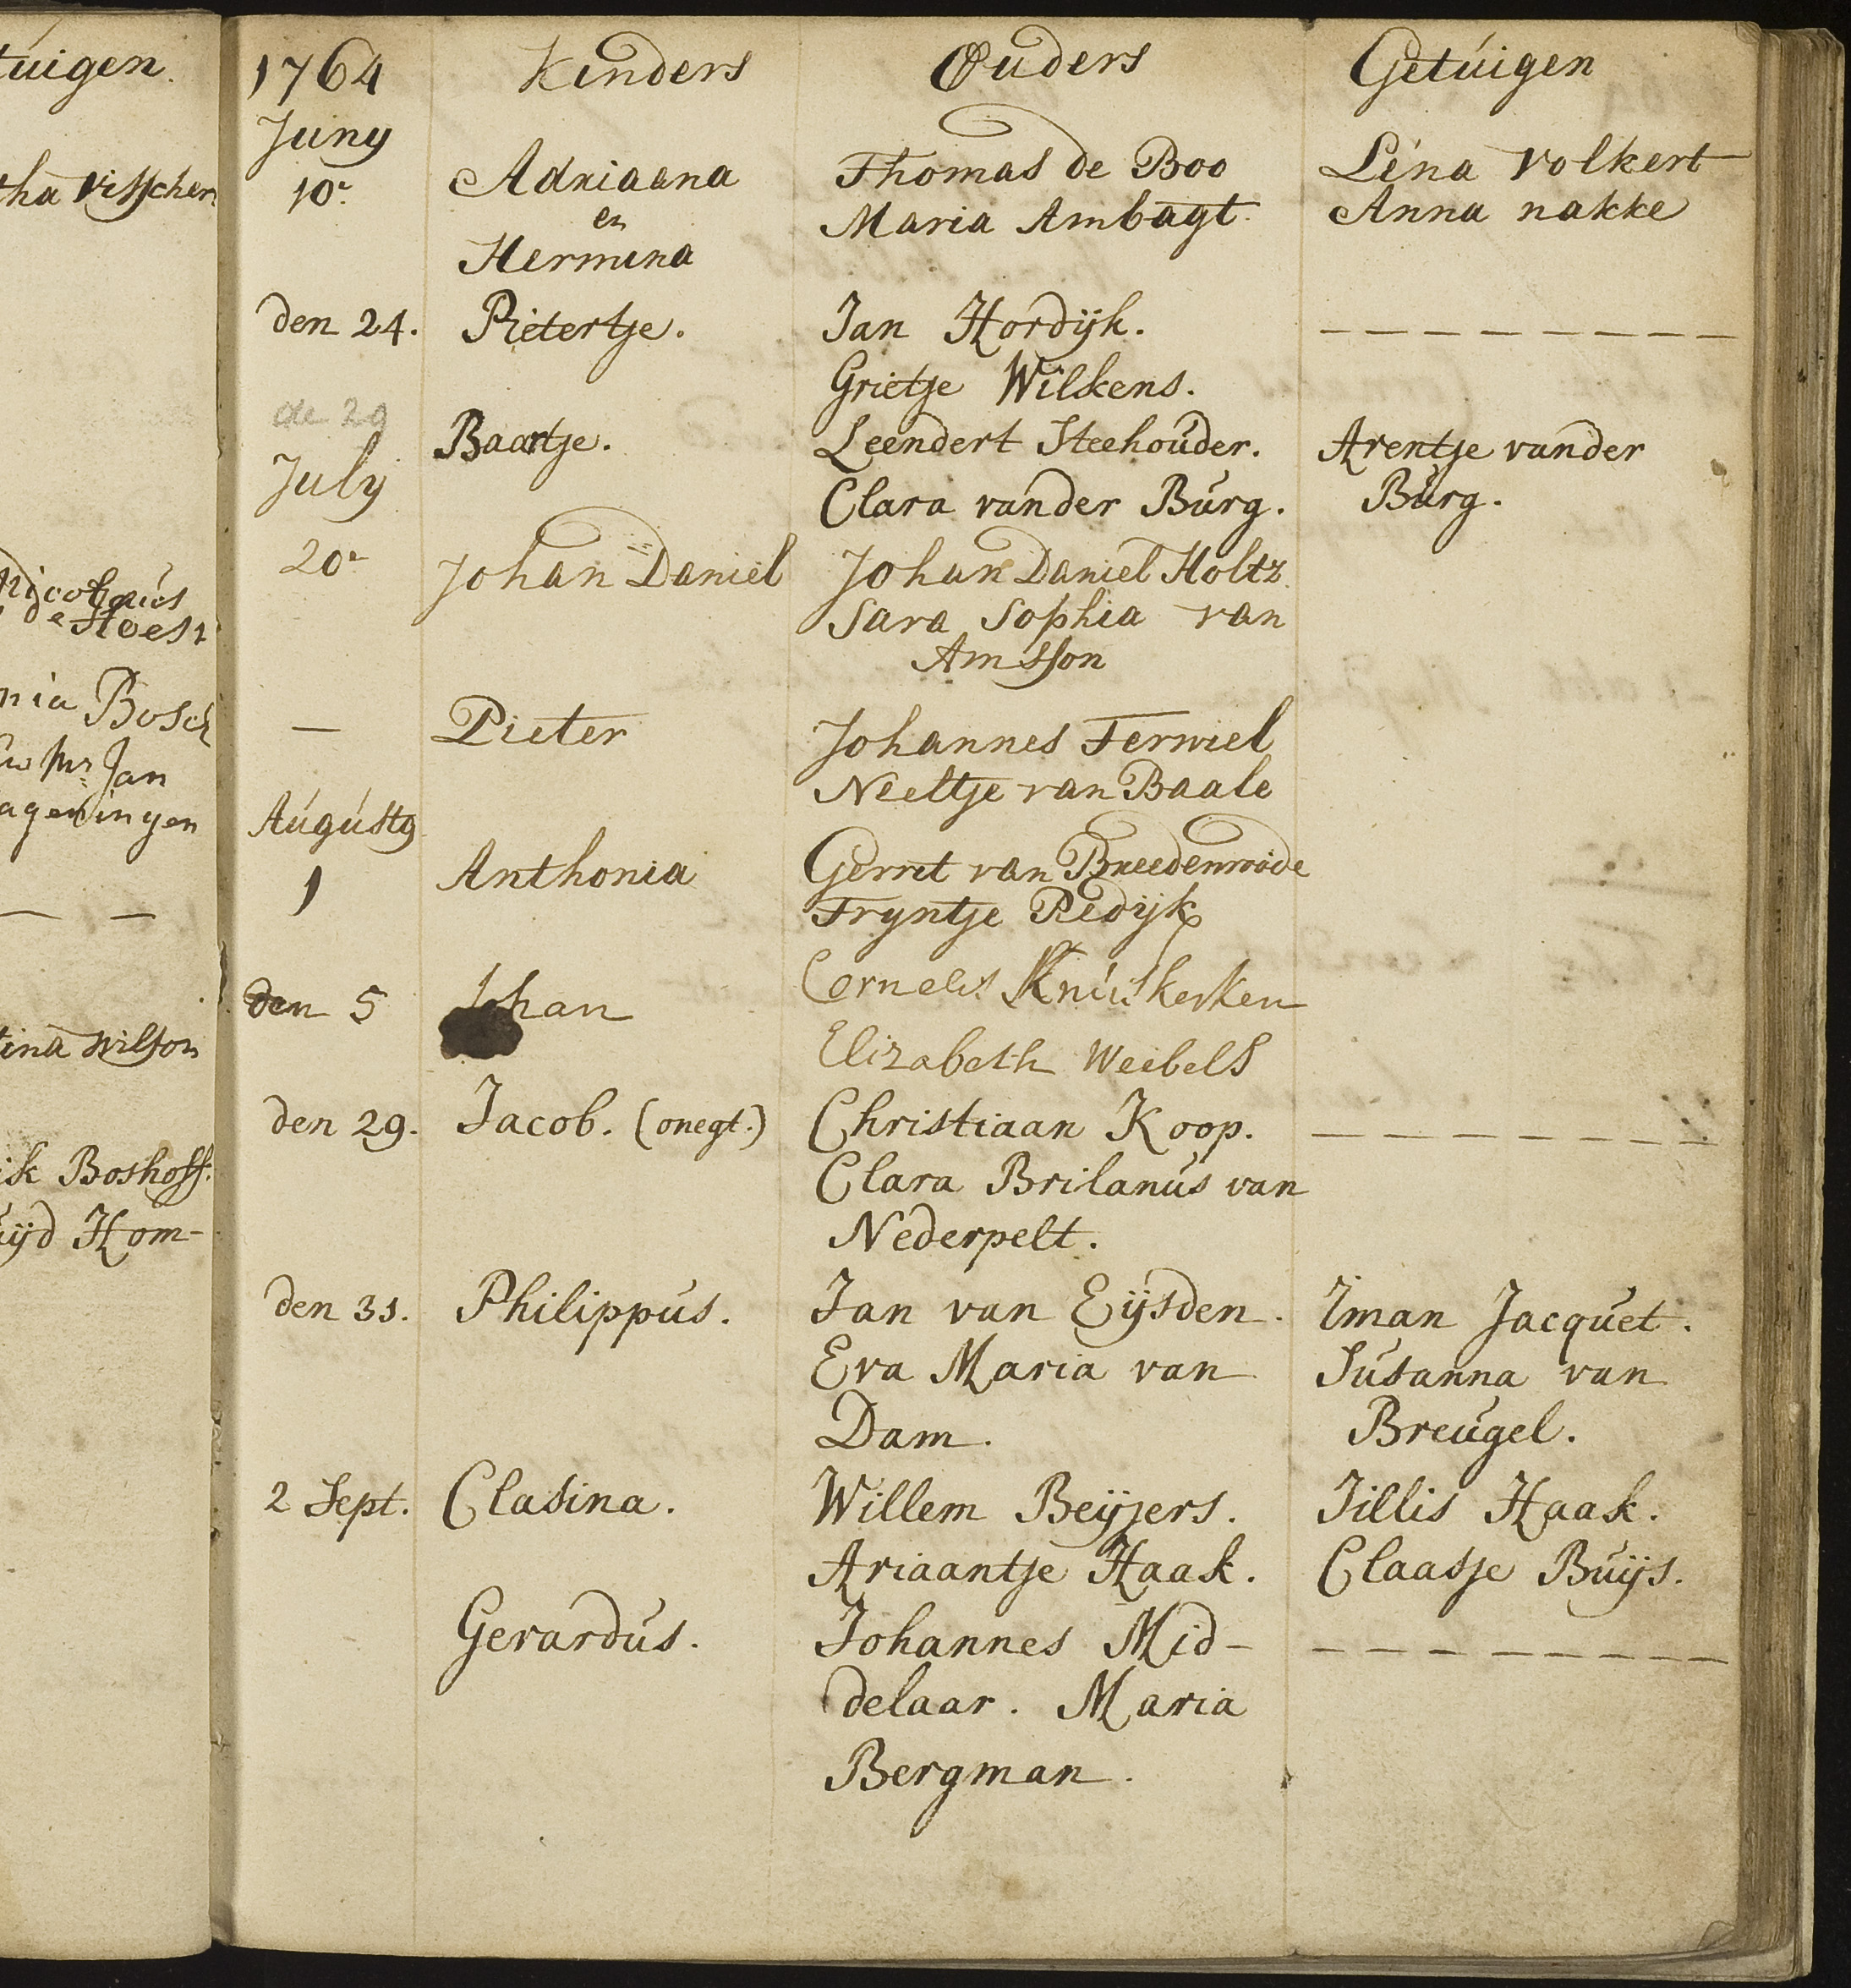 tuigen.
tha Visscher
Nicolaus
de Hoest
nia Bosch
Mr Jan
ageningen
— —
tina Wilson
ik Boshoff.
uijd Hom-
1764 Kinders Ouders Getuigen
Juny
10. Adriaana Thomas de Boo Lena Volkert
en Maria Ambagt. Anna nakke
Hermina
den 24. Pietertje. Jan Hordijk. — — — — — — — —
Grietje Wilkens.
de 29 Baartje. Leendert Steehouder. Arentje vander
July Clara vander Burg. Burg.
20. Johan Daniel Johan Daniel Holtz
Sara Sophia van
Amsson
— Pieter Johannes Terwiel
Neeltje van Baale
Augusty
1 Anthonia Gerret van Breedenroode
Tryntje Redijk
den 5 Johan Cornelis Knuiskerken
Elizabeth Weebels
den 29. Jacob. (onegt.) Christiaan Koop. — — — — — — — —
Clara Brilanus van
Nederpelt.
den 31. Philippus. Jan van Eijsden. Iman Jacquet.
Eva Maria van Susanna van
Dam. Breugel.
2 Sept. Clasina. Willem Beijjers. Jillis Haak.
Ariaantje Haak. Claasje Buijs.
Gerardus. Johannes Mid- — — — — — — — —
delaar. Maria
Bergman.